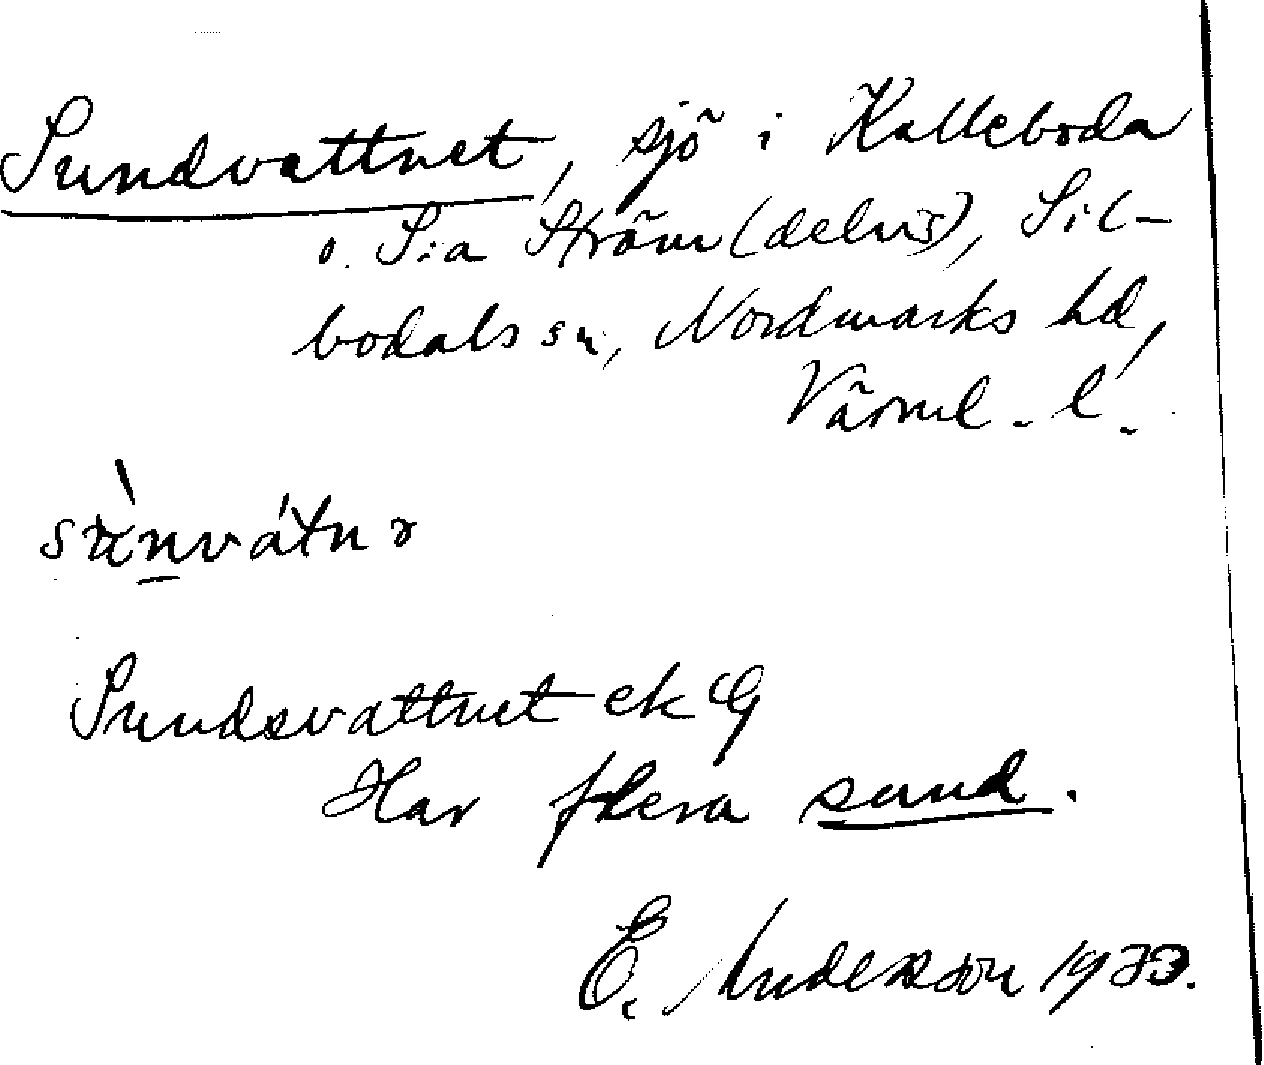 Sundvattnet, sjö i Kalleboda
o. S:a Ström (delvis), Sil-
bodals sn, Nordmarks hd,
Värml. l.
Sundsvattnet ek G
Har flera sund.
E. Andersson 1933.